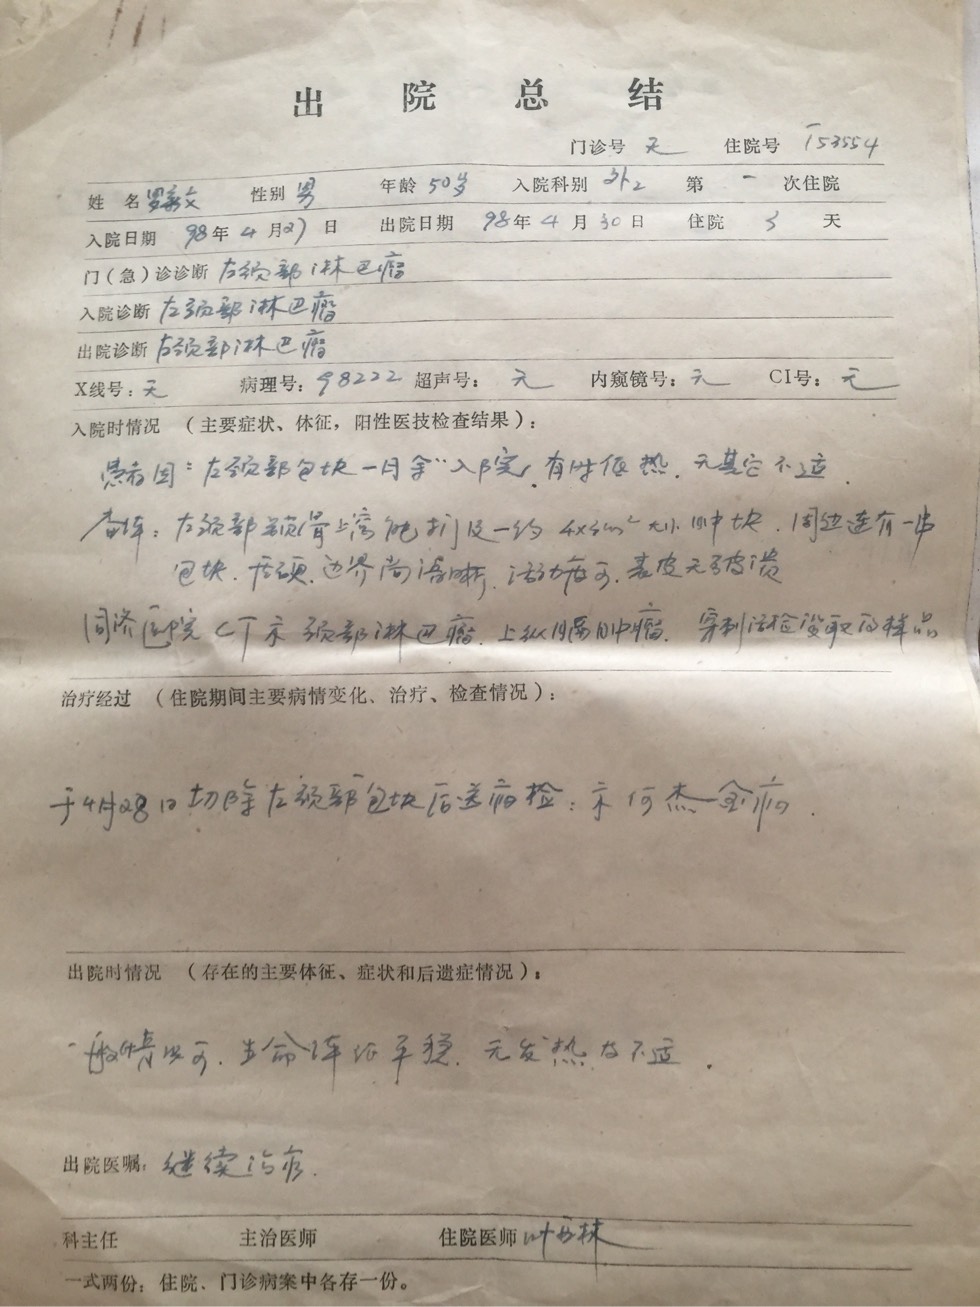 出 院 总 结
门诊号 无 住院号 153554
姓 名 性别 男 年龄 50岁 入院科别 外2 第 一 次住院
入院日期 98年 4 月27 日 出院日期 98年 4 月 30 日 住院 3 天
门(急)诊诊断 左颈部淋巴瘤
入院诊断 左颈部淋巴瘤
出院诊断 左颈部淋巴瘤
X线号:无 病理号:98222 超声号: 无 内窥镜号:无 CI号:无
入院时情况 (主要症状、体征,阳性医技检查结果):
患者因"左颈部包块一月余"入院,有时低热,无其它不适.
查体:左颈部锁骨上窝能扪及一约 4x3cm² 大小肿块,周边连有一串
包块,质硬,边界尚清晰,活动度可,表皮无破溃
同济医院CT示颈部淋巴瘤,上纵膈肿瘤,穿刺活检没取得样品
治疗经过 (住院期间主要病情变化、治疗、检查情况):
于4月28日切除左颈部包块后送病检:示何杰金病.
出院时情况 (存在的主要体征、症状和后遗症情况):
一般情况可,生命体征平稳,无发热及不适.
出院医嘱:继续治疗.
科主任 主治医师 住院医师
一式两份:住院、门诊病案中各存一份。